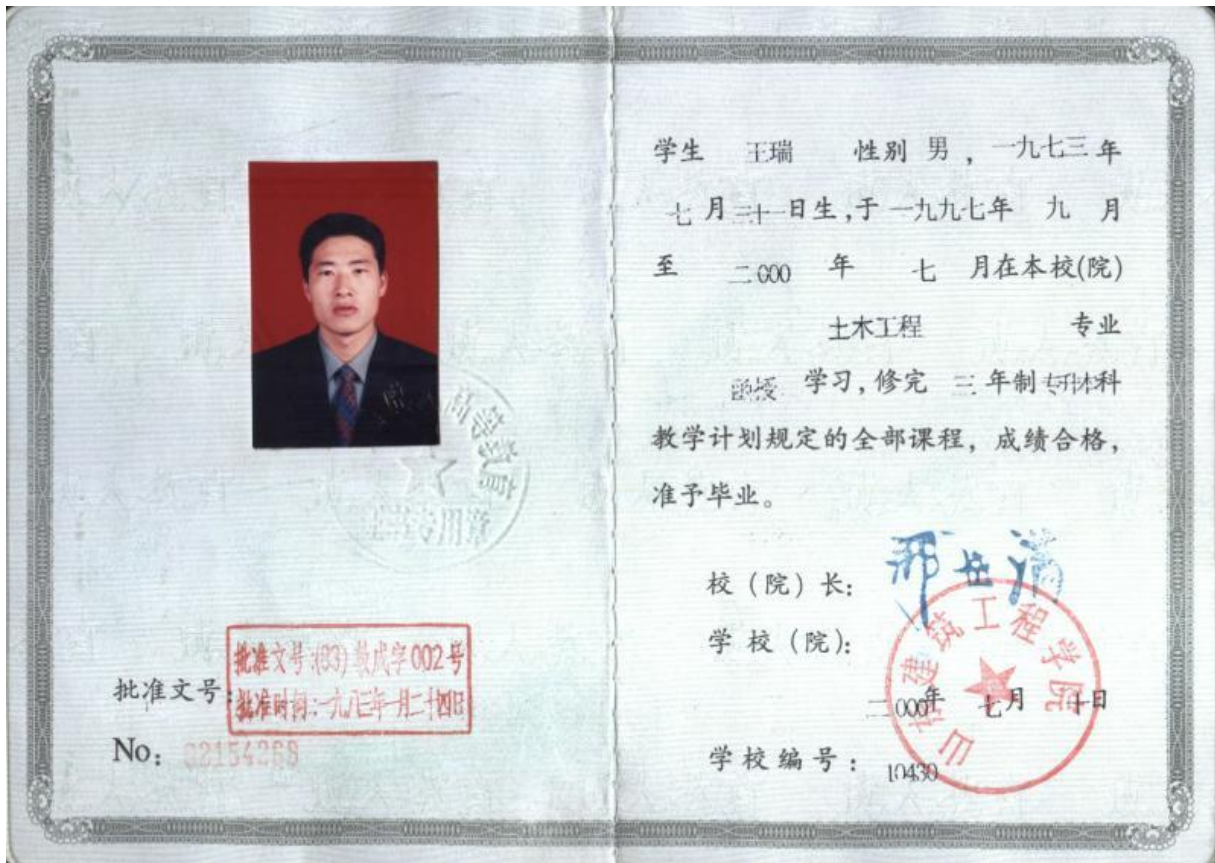 批准文号:(83)教成字002号
批准文号:
批准时间:一九八三年一月二十四日
No: 02154268
高等教育
证书专用章
学生 王瑞 性别 男 , 一九七三年
七 月 三十一 日生,于 一九九七年 九 月
至 二000 年 七 月在本校(院)
土木工程 专业
函授 学习,修完 三 年制 专升本科
教学计划规定的全部课程, 成绩合格,
准予毕业。
校(院)长:
学 校(院):
山东建筑工程学院
二000年 七月 十日
学校编号: 10430